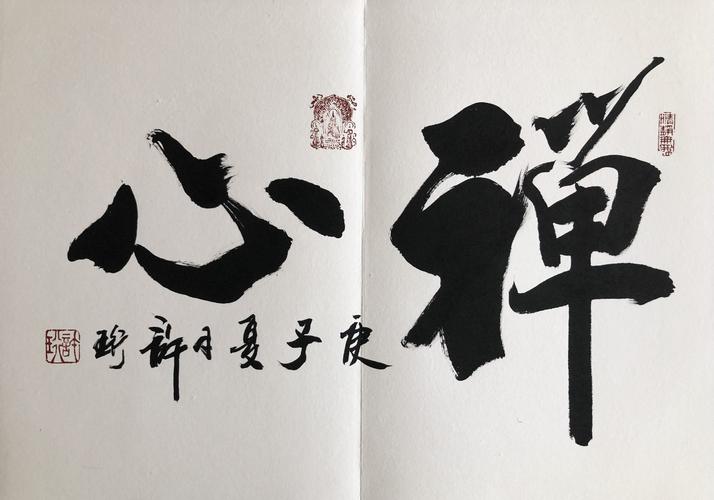 禪心
庚子夏月許